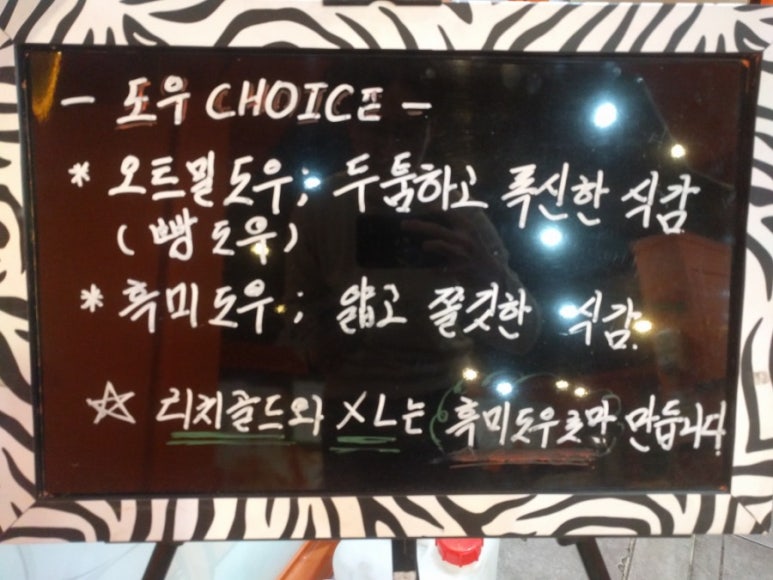 - 도우 CHOICE -
* 오트밀도우; 두툼하고 폭신한 식감
(빵도우)
* 흑미도우; 얇고 쫄깃한 식감.
☆ 리치골드와 XL는 흑미도우로만 만듭니다